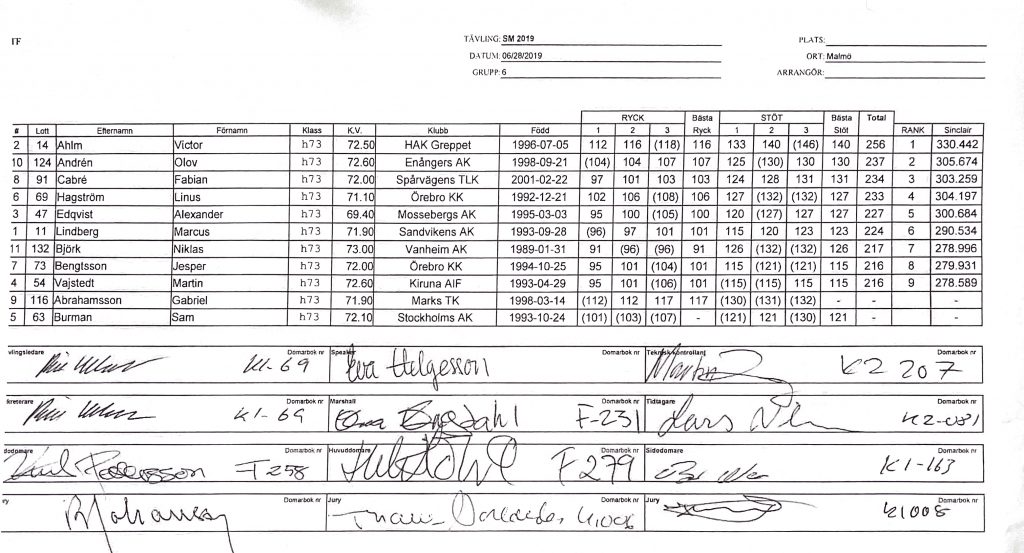 TF
TÄVLING: SM 2019 PLATS:
DATUM: 06/28/2019 ORT: Malmö
GRUPP: 6 ARRANGÖR:
RYCK Bästa STÖT Bästa Total
# Lott Efternamn Förnamn Klass K.V. Klubb Född 1 2 3 Ryck 1 2 3 Stöt RANK Sinclair
2 14 Ahlm Victor h73 72.50 HAK Greppet 1996-07-05 112 116 (118) 116 133 140 (146) 140 256 1 330.442
10 124 Andrén Olov h73 72.60 Enångers AK 1998-09-21 (104) 104 107 107 125 (130) 130 130 237 2 305.674
8 91 Cabré Fabian h73 72.00 Spårvägens TLK 2001-02-22 97 101 103 103 124 128 131 131 234 3 303.259
6 69 Hagström Linus h73 71.10 Örebro KK 1992-12-21 102 106 (108) 106 127 (132) (132) 127 233 4 304.197
3 47 Edqvist Alexander h73 69.40 Mossebergs AK 1995-03-03 95 100 (105) 100 120 (127) 127 127 227 5 300.684
1 11 Lindberg Marcus h73 71.90 Sandvikens AK 1993-09-28 (96) 97 101 101 115 120 123 123 224 6 290.534
11 132 Björk Niklas h73 73.00 Vanheim AK 1989-01-31 91 (96) (96) 91 126 (132) (132) 126 217 7 278.996
7 73 Bengtsson Jesper h73 72.00 Örebro KK 1994-10-25 95 101 (104) 101 115 (121) (121) 115 216 8 279.931
4 54 Vajstedt Martin h73 72.60 Kiruna AIF 1993-04-29 95 101 (106) 101 (115) (115) 115 115 216 9 278.589
9 116 Abrahamsson Gabriel h73 71.90 Marks TK 1998-03-14 (112) 112 117 117 (130) (131) (132) - - -
5 63 Burman Sam h73 72.10 Stockholms AK 1993-10-24 (101) (103) (107) - (121) 121 (130) 121 - -
vlingsledare Domarbok nr Speaker Domarbok nr Teknisk kontrollant Domarbok nr
K1-69 Eva Helgesson K2 207
kreterare Domarbok nr Marshall Domarbok nr Tidtagare Domarbok nr
K1-69 F-231 Lars K2-081
dodomare Domarbok nr Huvuddomare Domarbok nr Sidodomare Domarbok nr
F258 F279 K1-163
ry Domarbok nr Jury Domarbok nr Jury Domarbok nr
K1006 K1008